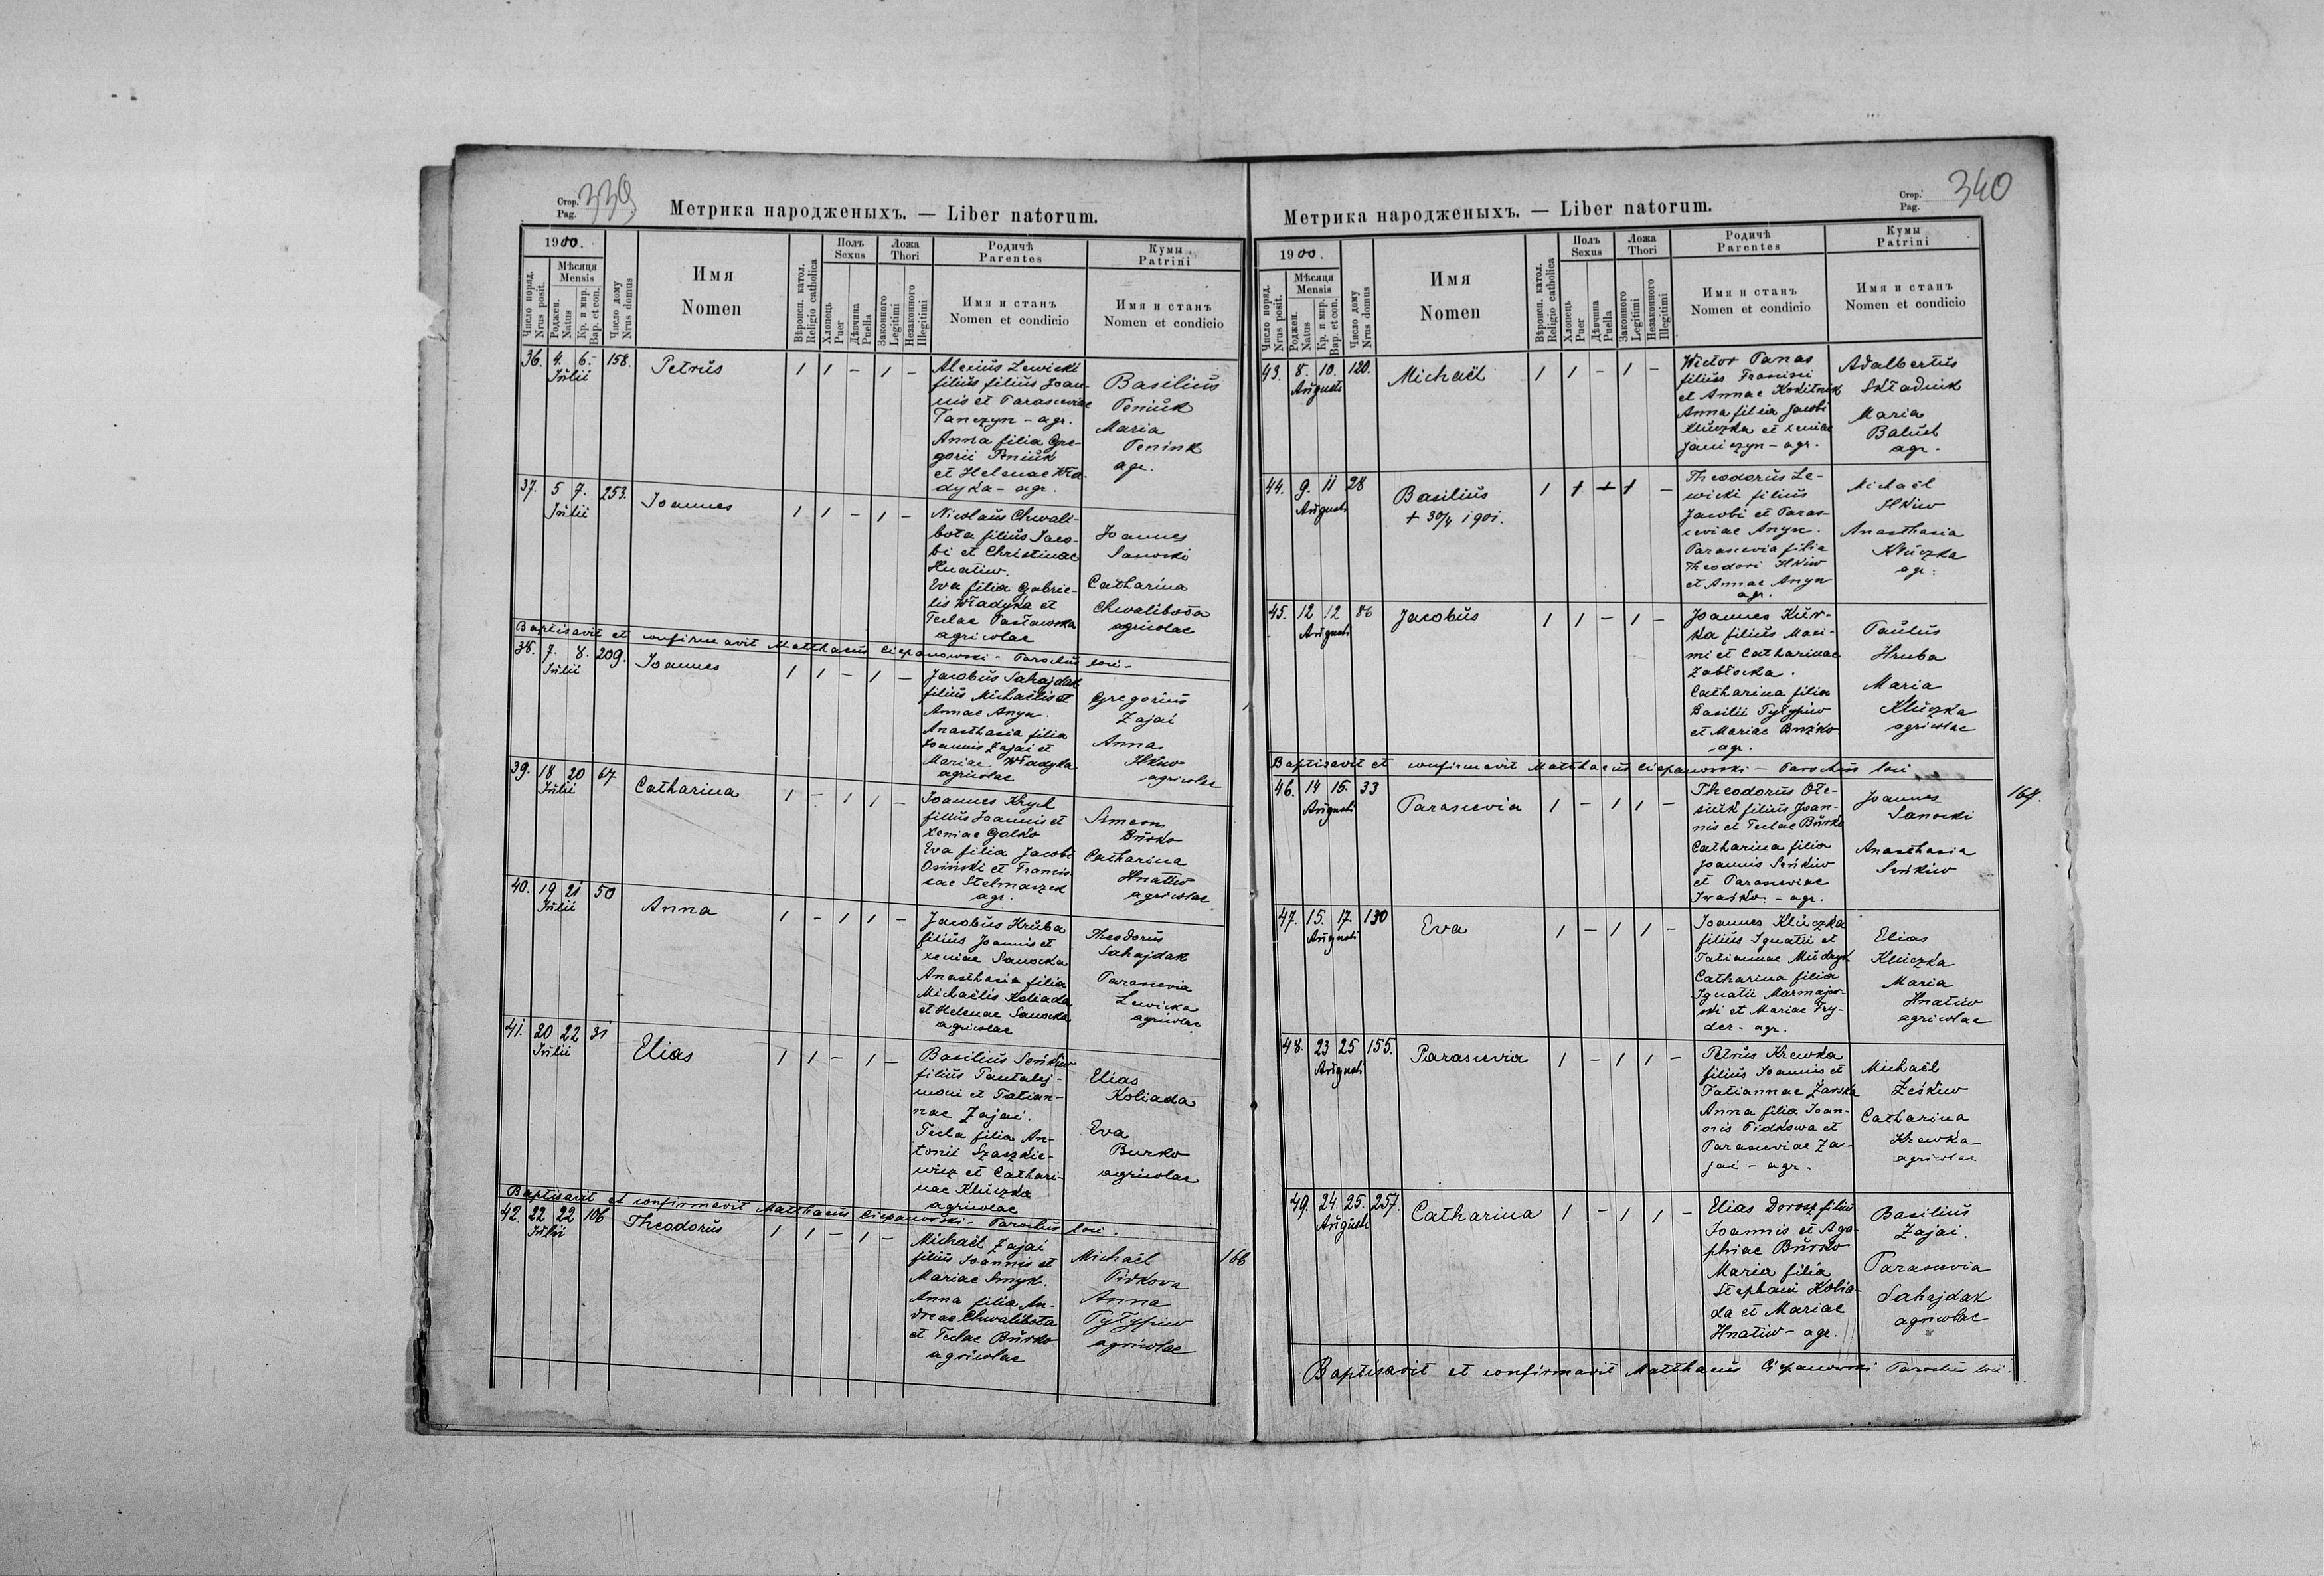 Стор.
Pag.
339
Метрика народженыхъ. — Liber natorum.
1900.
Число поряд.
Nrus posit.
Мѣсяця
Mensis
Роджен.
Natus
Кр. и мир.
Bap. et con.
Число дому
Nrus domus
Имя
Nomen
Вѣроисп. катол.
Religio catholica
Полъ
Sexus
Хлопець
Puer
Дѣвчина
Puella
Ложа
Thori
Законного
Legitimi
Незаконного
Illegitimi
Родичѣ
Parentes
Имя и станъ
Nomen et condicio
Кумы
Patrini
Имя и станъ
Nomen et condicio
36. 4. 6. 158. Petrus 1 1 - 1 -
Julii
Alexius Lewicki
filius filius Joan-
nis et Parasceviae
Panczyn - agr.
Anna filia Gre-
gorii Peniuk
et Helenae Wła-
dyka - agr.
Basilius
Peniuk
Maria
Peniuk
agr.
37. 5 7. 253. Joannes 1 1 - 1 -
Julii
Nicolaus Chwali-
bota filius Jaco-
bi et Christinae
Hnatiw.
Eva filia Gabrie-
lis Władyka et
Teclae Pasławska
agricolae
Joannes
Sanocki
Catharina
Chwalibota
agricolae
Baptisavit et confirmavit Matthaeus Ciepanowski - Parochus loci -
38. 7. 8. 209. Joannes 1 1 - 1 -
Julii
Jacobus Sahajdak
filius Michaelis et
Annae Anyn.
Anasthasia filia
Joannis Zajai et
Mariae Władyka
agricolae
Gregorius
Zajai
Anna
Ilkiw
agricolae
39. 18 20 67 Catharina 1 - 1 1 -
Julii
Joannes Kryl
filius Joannis et
Xeniae Golko
Eva filia Jacobi
Osiński et Francis-
cae Stelmaszek
agr.
Simeon
Burko
Catharina
Hnatiw
agricolae
40. 19 21 50 Anna 1 - 1 1 -
Julii
Jacobus Hruba
filius Joannis et
Xeniae Sanocka
Anasthasia filia
Michaëlis Koliada
et Helenae Sanocka
agricolae
Theodorus
Sahajdak
Parascevia
Lewicka
agricolae
41. 20 22 31 Elias 1 1 - 1 -
Julii
Basilius Seńkiw
filius Pantalej-
moni et Tatian-
nae Zajai.
Tecla filia An-
tonii Szaszkie-
wicz et Cathari-
nae Kluczka
agricolae
Elias
Koliada
Eva
Burko
agricolae
Baptisavit et confirmavit Matthaeus Ciepanowski - Parochus loci.
42. 22 22 106 Theodorus 1 1 - 1 -
Julii
Michaël Zajai
filius Joannis et
Mariae Smyk.
Anna filia An-
dreae Chwalibota
et Teclae Burko
agricolae
Michaël
Pidkova
Anna
Pyłypiw
agricolae
166
Стор.
Pag.
340
Метрика народженыхъ. — Liber natorum.
1900.
Число поряд.
Nrus posit.
Мѣсяця
Mensis
Роджен.
Natus
Кр. и мир.
Bap. et con.
Число дому
Nrus domus
Имя
Nomen
Вѣроисп. катол.
Religio catholica
Полъ
Sexus
Хлопець
Puer
Дѣвчина
Puella
Ложа
Thori
Законного
Legitimi
Незаконного
Illegitimi
Родичѣ
Parentes
Имя и станъ
Nomen et condicio
Кумы
Patrini
Имя и станъ
Nomen et condicio
43. 8. 10. 120. Michaël 1 1 - 1 -
Augusti
Wictor Panas
filius Francisci
et Annae Kokitnik
Anna filia Jacobi
Kluczka et Xeniae
Janiczyn - agr.
Adalbertus
Składnik
Maria
Baluch
agr.
44. 9. 11 28 Basilius
Augusti
+ 30/4 1901.
Theodorus Le-
wicki filius
Jacobi et Paras-
ceviae Anyn.
Parascevia filia
Theodori Ilkiw
et Annae Anyn
agr.
Michaël
Ilkiw
Anasthasia
Kluczka
agr.
45. 12 12 86 Jacobus 1 1 - 1 -
Augusti
Joannes Kur-
ka filius Maxi-
mi et Catharinae
Zabłocka.
Catharina filia
Basilii Pyłypiw
et Mariae Buzko
agr.
Paulus
Hruba
Maria
Kluczka
agricolae
Baptisavit et confirmavit Matthaeus Ciepanowski - Parochus loci
46. 14 15. 33 Parascevia 1 - 1 1 -
Augusti
Theodorus Ole-
siuk filius Joan-
nis et Teclae Burko
Catharina filia
Joannis Seńkiw
et Parasceviae
Iwaśko. - agr.
Joannes
Sanocki
Anasthasia
Seńkiw
167.
47. 15. 17. 130 Eva 1 - 1 1 -
Augusti
Joannes Kluczka
filius Ignatii et
Tatiannae Mudryk
Catharina filia
Ignatii Marmajew-
ski et Mariae Fry-
der - agr.
Elias
Kluczka
Maria
Hnatiw
agricolae
48. 23 25 155. Parascevia 1 - 1 1 -
Augusti
Petrus Krewka
filius Joannis et
Tatiannae Zawska
Anna filia Joan-
nis Pidkowa et
Parasceviae Za-
jai - agr.
Michaël
Leśkiw
Catharina
Krewka
agricolae
49. 24. 25. 257. Catharina 1 - 1 1 -
Augusti
Elias Dorosz filius
Joannis et Aga-
phiae Burko
Maria filia
Stephani Kolia-
da et Mariae
Hnatiw - agr.
Basilius
Zajai.
Parascevia
Sahajdak
agricolae
Baptisavit et confirmavit Matthaeus Ciepanowski Parochus loci.